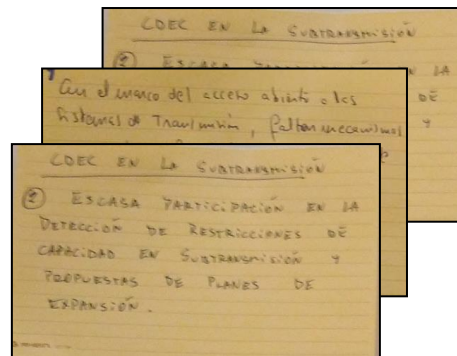 CDEC EN LA SUBTRANSMISIÓN
② ESCASA
LA
DE
Y
En el marco del acceso abierto a los
Sistemas de Transmisión, faltan mecanismos
CDEC EN LA SUBTRANSMISIÓN
② ESCASA PARTICIPACIÓN EN LA
DETECCIÓN DE RESTRICCIONES DE
CAPACIDAD EN SUBTRANSMISIÓN Y
PROPUESTAS DE PLANES DE
EXPANSIÓN.